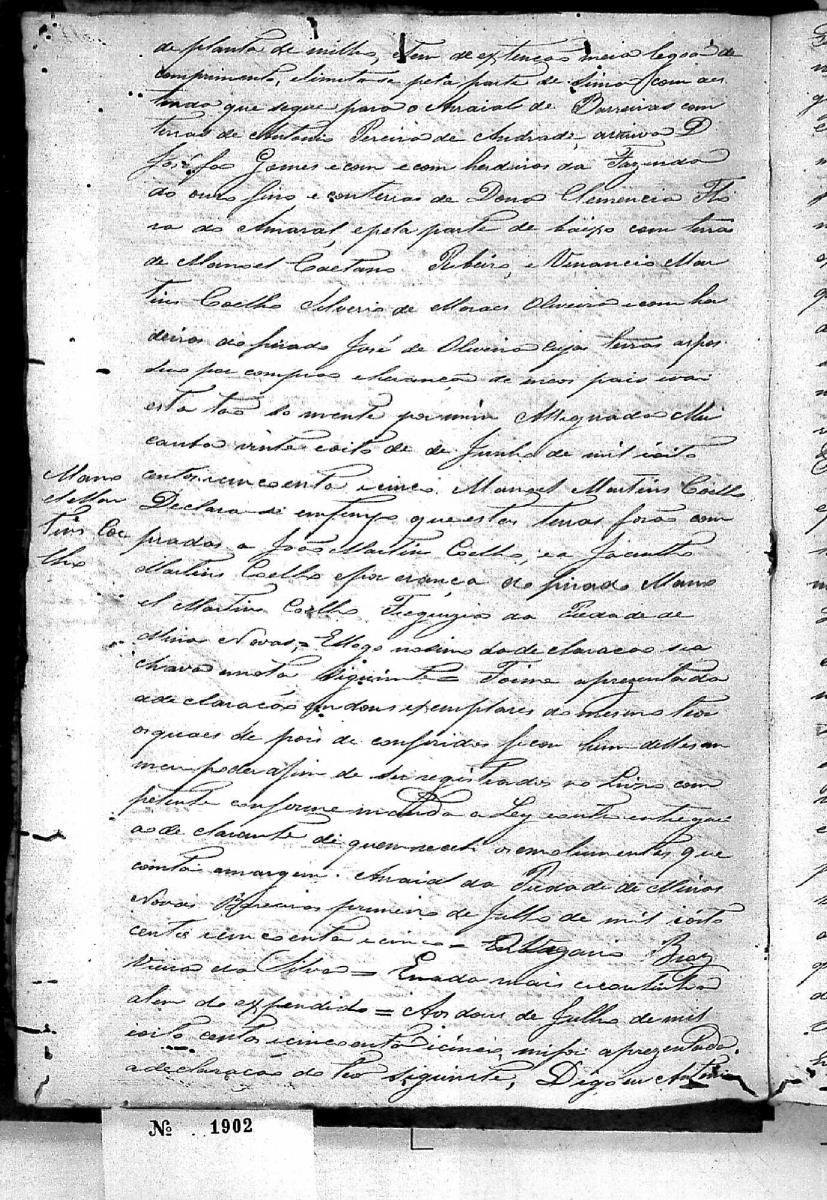 de planta de milho, e tem de extenção meia legoa de
comprimento, elimita-se pela parte de sima com aes
trada que segue para o Arraial de Barreiras com
terras de Antonio Pereira de Andrade, arriva D.
Josefa Gomes e com e com herdeiros da Fazenda
do ouro fino e com terras de Dona Clemencia Flo
ra do Amaral, epela parte de baixo com terras
de Manoel Caetano Ribeiro, e Venancio Mar
tins Coelho Silverio de Moraes Oliveira e com her
deiros do finado José de Oliveira cujas terras as pos
suo por compras eherança de meos pais e vai
esta tão somente por mim Assignada
vinte eoito de de Junho de mil eoito
centos ecincoenta ecinco. Manoel Martins Coelho
Mano
el Mar
tins Coe
lho
Declara-di em tempo que estas terras forão com
pradas a João Martins Coelho, e a Jacintho
Martins Coelho epor erança do finado Mano
el Martins Coelho Freguezia da Piedade de
Minas Novas, = Elogo no fim da declaração sea
chava a nota siguinte = Foi me aprezentada
adeclaração em dous exemplares do mesmo teor
osquaes de pois de conferidos ficou hum delles em
meu poder afim de ser registrados no Livro com
petente conforme manda a Ley eoutro entregue
ao de clarante de quem recebi os emolumentos que
consta amargem. Arraial da Piedade de Minas
Novas Barreiras primeiro de Julho de mil eoito
centos ecincoenta ecinco = O Vigario Braz
Vieira da Silva = Enada mais econtinha
alem do expendido = Aos dous de Julho de mil
eoito centos ecincoenta ecinco, mifoi aprezentada
adeclaração do teor siguinte, Digo eu Antonio
Nº 1902